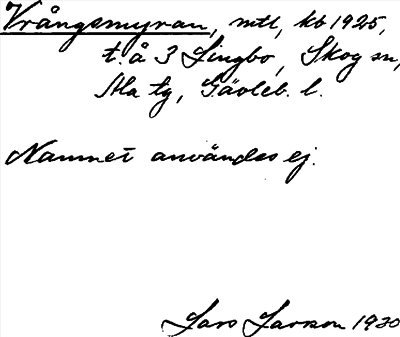 Vrångsmyran, mtl, kb 1925,
t. å 3 Lingbo, Skog sn,
Ala tg, Gävleb. l.
Namnet användes ej.
Lars Larson 1930